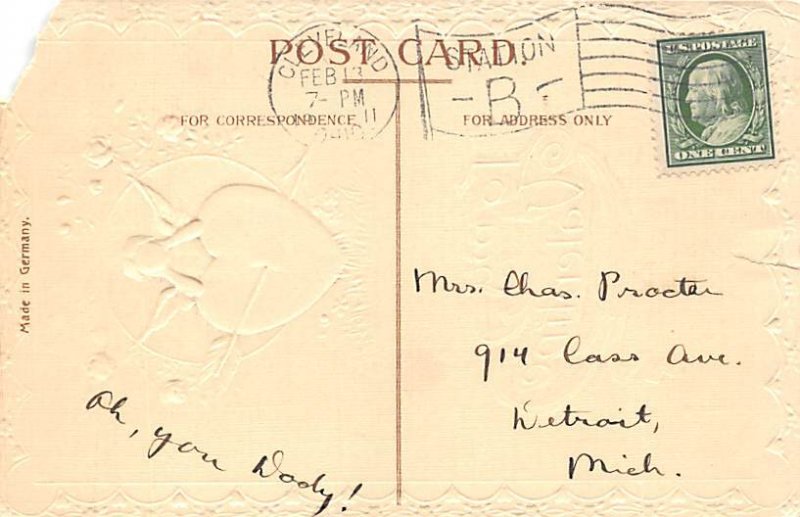 POST CARD.
CLEVELAND
FEB 13
7- PM
11
OHIO
STATION
-B-
U.S. POSTAGE
ONE CENT
FOR CORRESPONDENCE
FOR ADDRESS ONLY
Made in Germany.
Mrs. Chas. Procter
914 Cass Ave.
Detroit,
Mich.
Ah, you Dody!